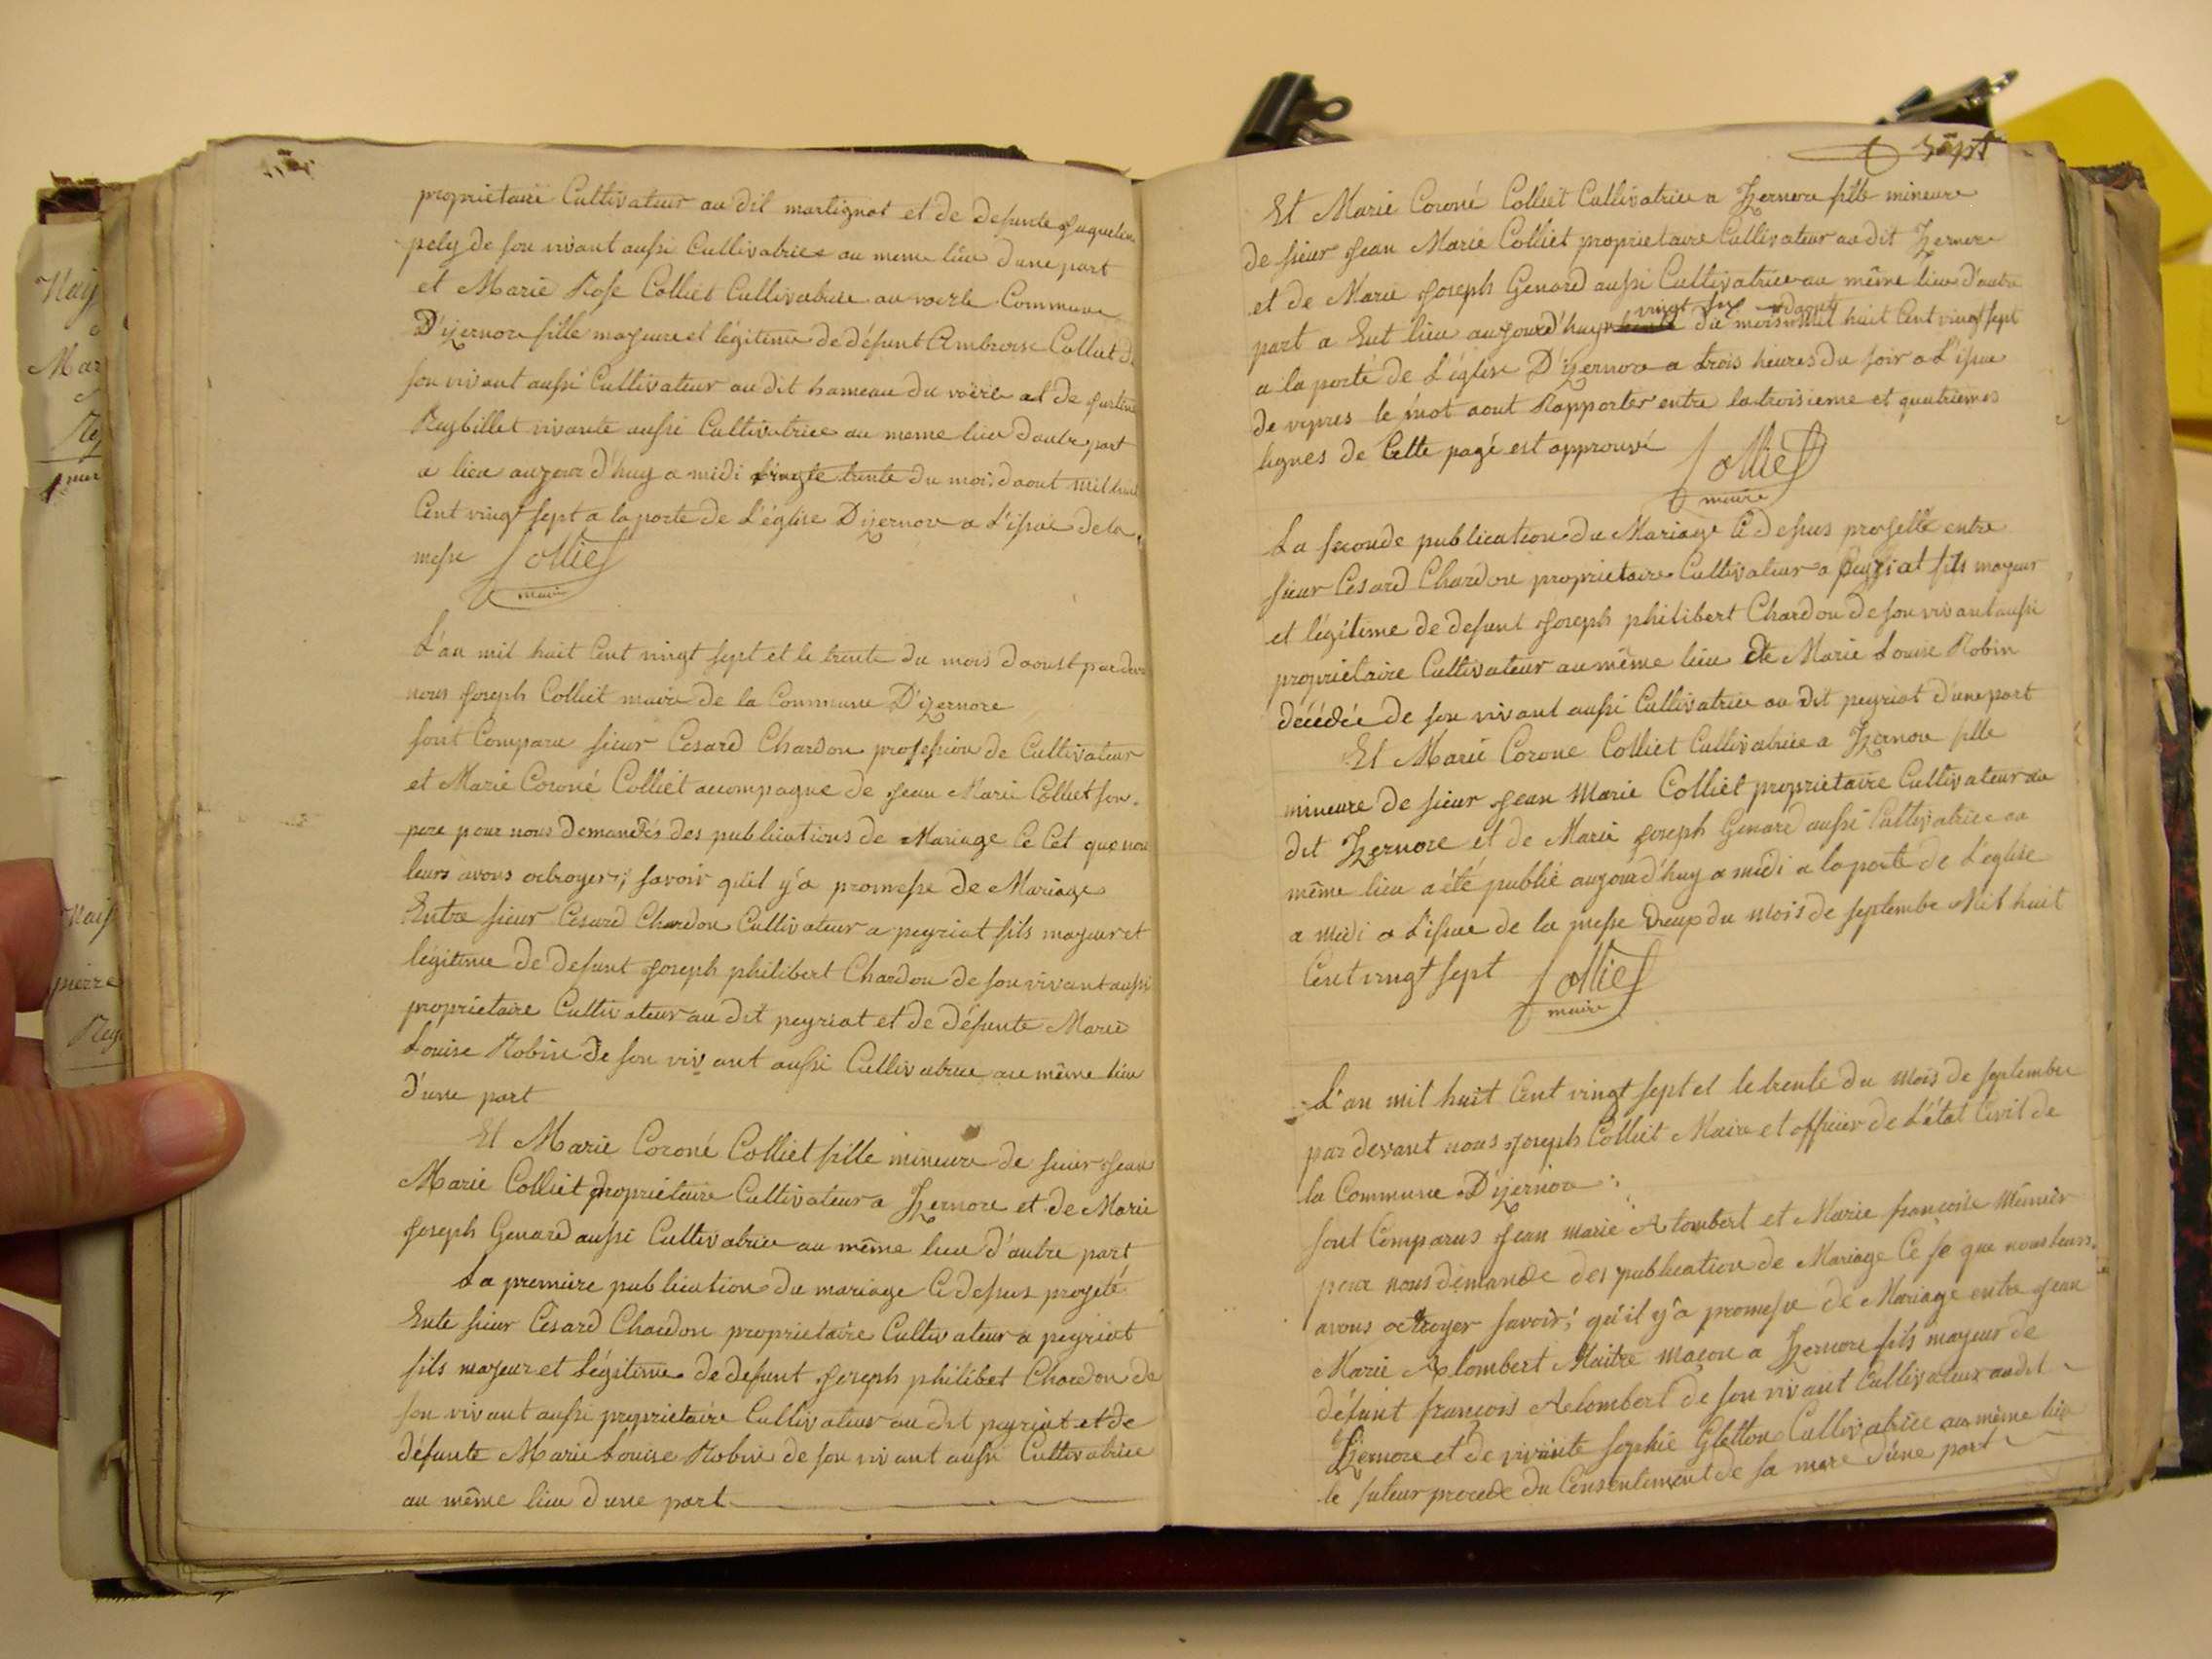 proprietaire Cultivateur au dit martignat et de defunte Jaqueline
pely de son vivant aussi Cultivatrice au meme lieu dune part
et Marie Rose Colliet Cultivatrice au voerle Commune
D'izernore fille majeure et légitime de défunt Ambroise Colliet de
son vivant aussi Cultivateur au dit hameau du voerle et de
Reybillet vivante aussi Cultivatrice au meme lieu dautre part
a lieu aujour d'huy a midi trente du mois daout mil huit
Cent vingt sept a la porte de L'église D'izernore a L'issue de la
messe Colliet
maire
L'an mil huit Cent vingt sept et le trente du mois daoust par devant
nous Joseph Colliet maire de la Commune D'izernore
sont Comparu sieur Cesard Chardon profession de Cultivateur
et Marie Coroné Colliet accompagne de Jean Marie Colliet son
pere pour nous demandés des publications de Mariage Ce Cet que nous
leurs avons octroyer; savoir qu'il y'a promesse de Mariage
Entre sieur Cesard Chardon Cultivateur a peyriat fils majeur et
légitime de defunt Joseph philibert Chardon de son vivant aussi
propriétaire Cultivateur au dit peyriat et de défunte Marie
Louise Robin de son vivant aussi Cultivatrice au même lieu
d'une part
Et Marie Coroné Colliet fille mineure de sieur Jean
Marie Colliet propriétaire Cultivateur a Izernore et de Marie
Joseph Genard aussi Cultivatrice au même lieu d'autre part
La premiere publication du mariage Ci dessus projeté
Ente sieur Césard Chardon proprietaire Cultivateur a peyriat
fils majeur et légitime de defunt Joseph philibet Chardon de
son vivant aussi proprietaire Cultivateur au dit peyriat et de
défunte Marie Louise Robin de son vivant aussi Cultivatrice
au même lieu d une part
sept
Et Marie Coroné Colliet Cultivatrice a Izernore fille mineure
de sieur Jean Marie Colliet proprietaire Cultivateur au dit Izernore
et de Marie Joseph Genard aussi Cultivatrice au même lieu d'autre
vingt six daout
part a Eut lieu aujourd'huy trente du mois mil huit Cent vingt sept
a la porte de L'église D'izernore a trois heures du soir a L'issue
de vepres le mot aout Rapporter entre la troisieme et quatriemes
lignes de Cette page est approuvé Colliet
maire
La seconde publication du Mariage Ci dessus projetté entre
sieur Cesard Chardon proprietaire Cultivateur a peyriat fils majeur
et légitime de defunt Joseph philibert Chardon de son vivant aussi
propriétaire Cultivateur au même lieu et de Marie Louise Robin
décédée de son vivant aussi Cultivatrice au dit peyriat d'une part
Et Marie Corone Colliet Cultivatrice a Izernore fille
mineure de sieur Jean Marie Colliet propriétaire Cultivateur au
dit Izernore et de Marie Joseph Genard aussi Cultivatrice au
même lieu a été publié aujourd'huy a midi a la porte de L'eglise
a midi a L'issue de la messe Deux du mois de septembre Mil huit
Cent vingt sept Colliet
maire
L'an mil huit Cent vingt sept et le trente du mois de septembre
par devant nous Joseph Colliet Maire et officier de L'état Civil de
la Commune D'izernore :
sont Comparus Jean marie Alombert et Marie francoise Munier
pour nous demande des publication de Mariage Ce se que nous leurs
avons octroyer savoir; qu'il y'a promesse de Mariage entre Jean
Marie Alombert Maitre macon a Izernore fils majeur de
défunt françois Alombert de son vivant Cultivateur au dit
Izernore et de vivante sophie Gletton Cultivatrice au même lieu
le futeur procede du Consentement de sa mere d'une part